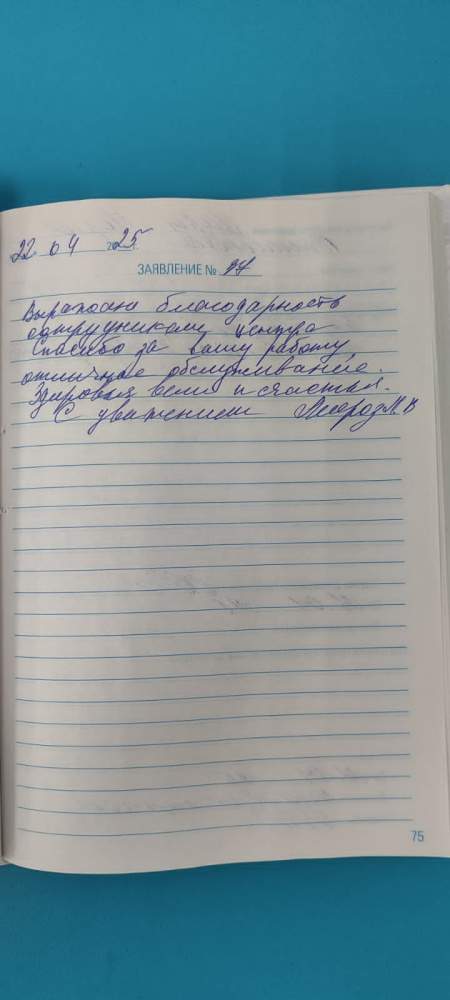 22 04 2025
ЗАЯВЛЕНИЕ № 94
Выражаю благодарность
сотрудникам центра
Спасибо за вашу работу,
отличное обслуживание.
Здоровья всем и счастья.
С уважением Мороз Л. В
75